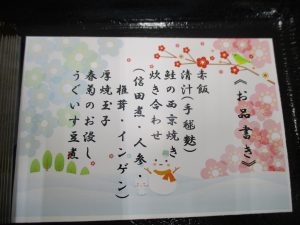 《お品書き》
赤飯
清汁(手毬麩)
鮭の西京焼き
炊き合わせ
(信田煮・人参・
椎茸・インゲン)
厚焼玉子
春菊のお浸し
うぐいす豆煮